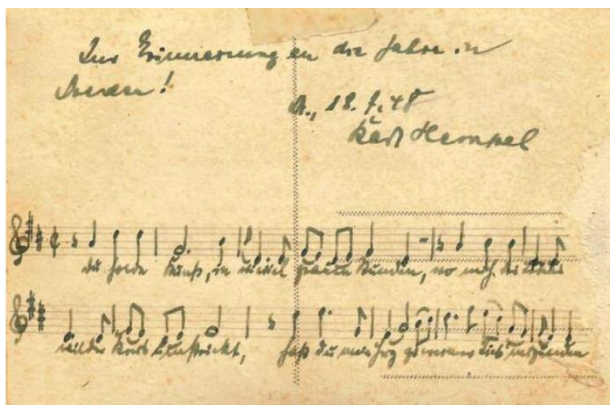 Zur Erinnerung an die Jahre in
Karl Hempel
du holde Kunst, in wieviel grauen Stunden, wo mich des Lebens
wilder Kreis umstrickt, hast du mein Herz zu warmer Lieb entzunden